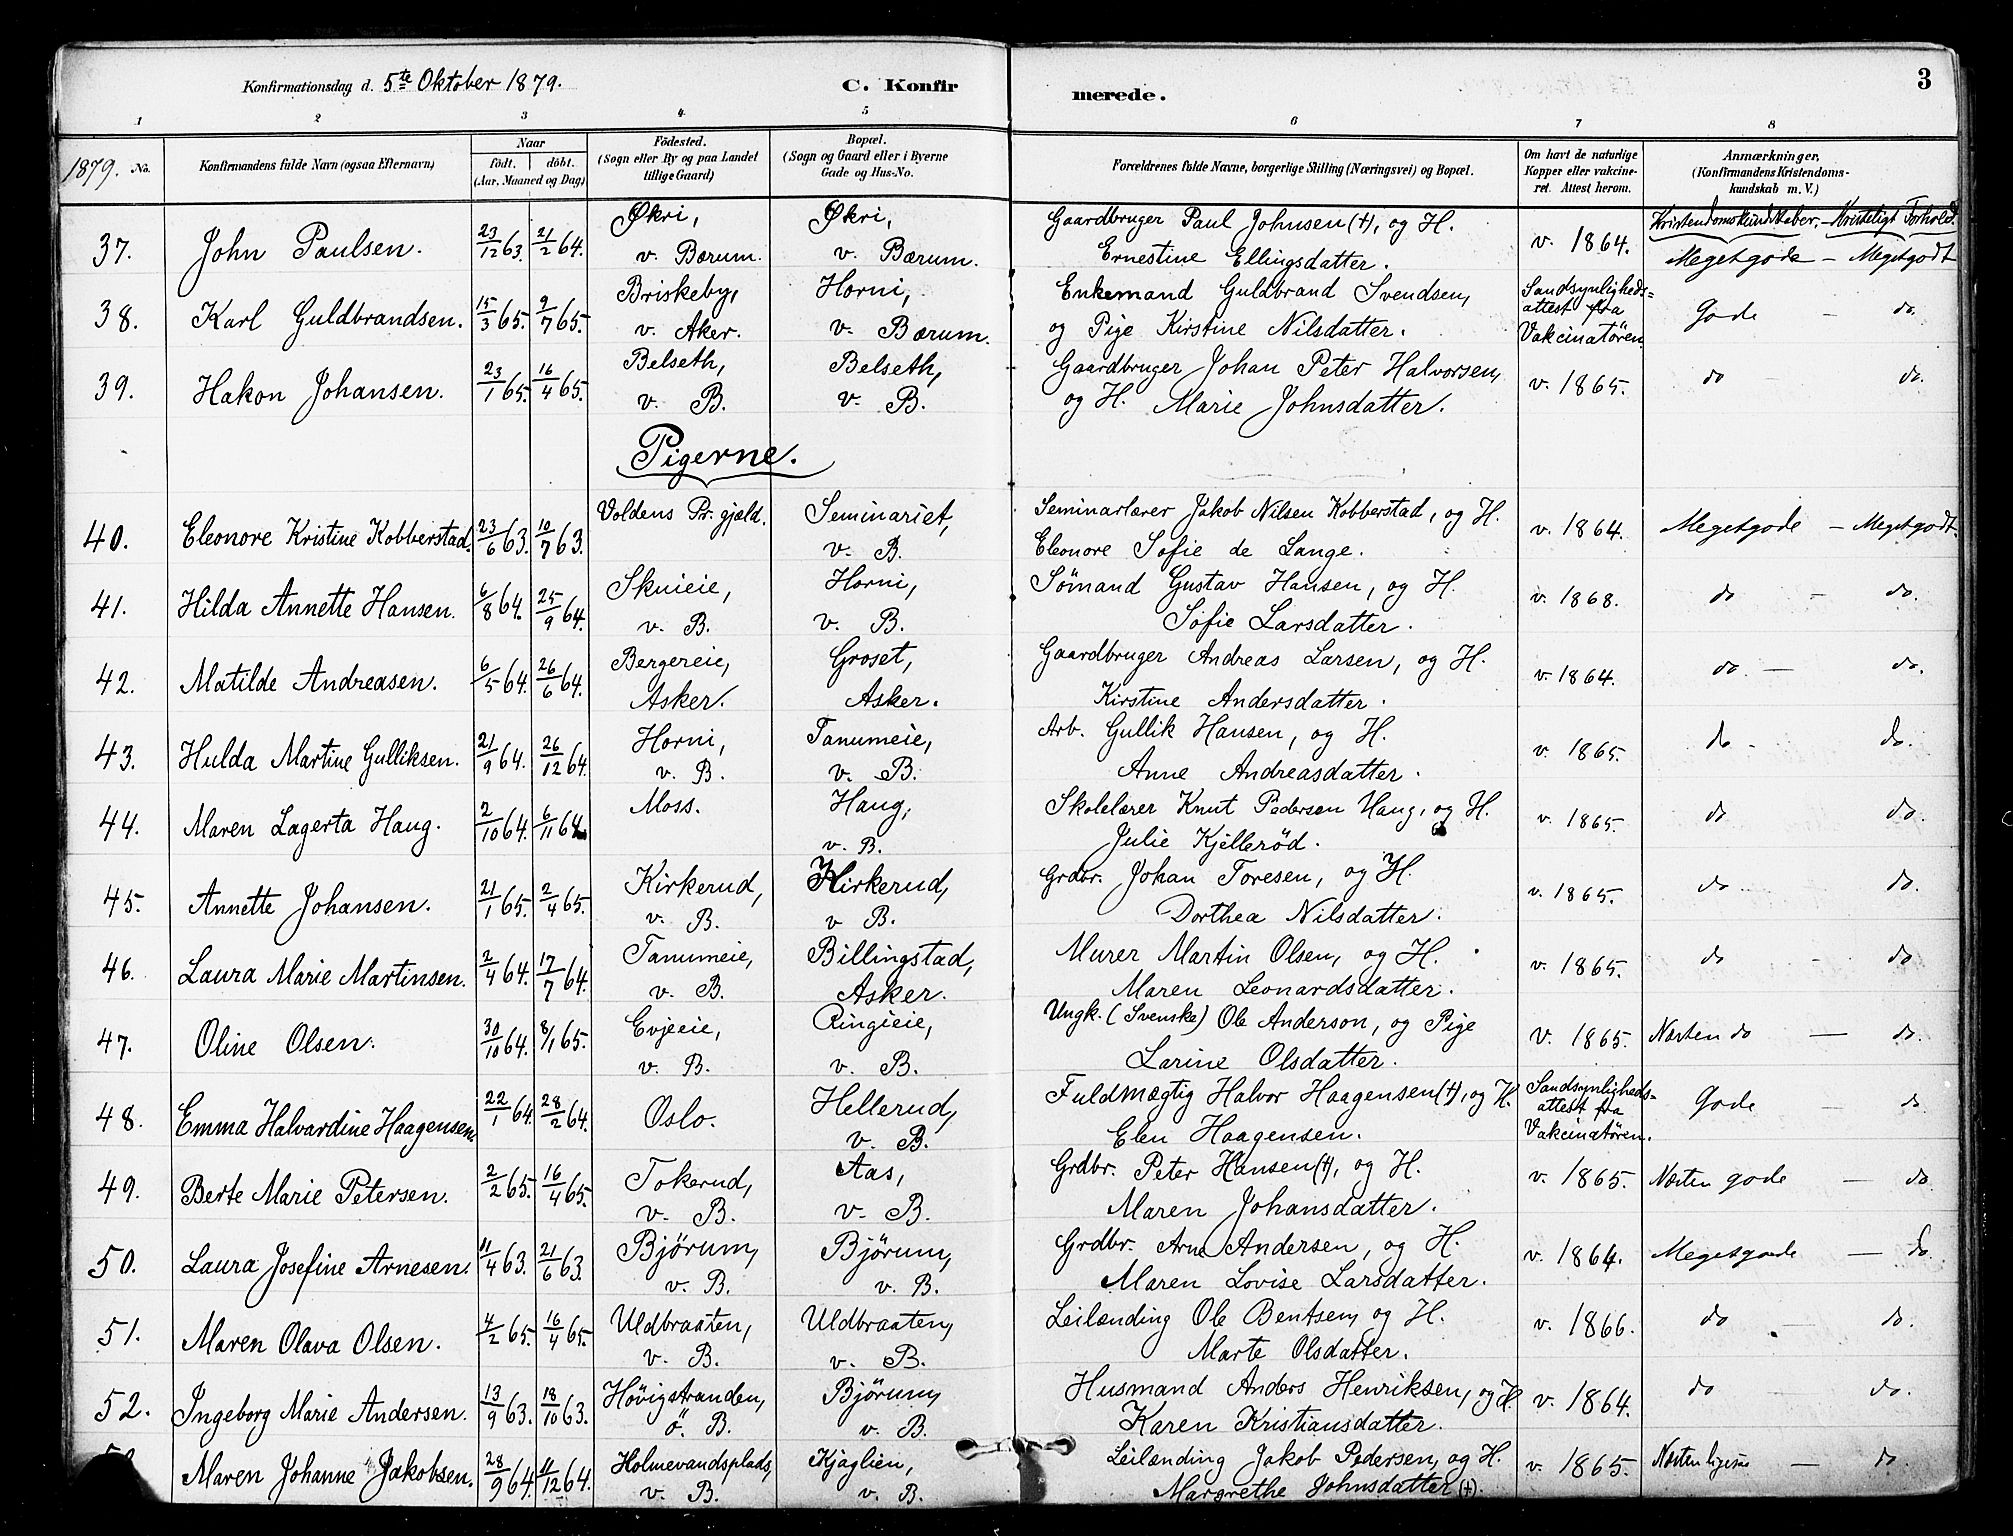 Konfirmationsdag d. 5te Oktober 1879. C. Konfirmerede. 3
1 2 3 4 5 6 7 8
1879. No. Konfirmandens fulde Navn (ogsaa Efternavn) Naar födt. döbt. (Aar, Maaned og Dag) Födested. (Sogn eller By og paa Landet tillige Gaard) Bopæl. (Sogn og Gaard eller i Byerne Gade og Hus-No. Forældrenes fulde Navne, borgerlige Stilling (Næringsvei) og Bopæl. Om havt de naturlige Kopper eller vakcineret. Attest herom. Anmærkninger, (Konfirmandens Kristendomskundskab m. V.)
Kristendomskundskaber. — Kristeligt Forhold.
37. John Paulsen. 23/12 63. 21/2 64. Økri, v. Bærum. Økri, v. Bærum. Gaardbruger Paul Johnsen (†), og H. v. 1864. Megetgode — Megetgodt
Ernestine Ellingsdatter.
38. Karl Guldbrandsen. 15/3 65. 9/7 65. Briskeby, v. Aker. Horni, v. Bærum. Enkemand Guldbrand Svendsen, Sandsynligheds= attest fra Vakcinatören. Gode — do.
og Pige Kirstine Nilsdatter.
39. Hakon Johansen. 23/1 65. 16/4 65. Belseth, v. B. Belseth, v. B. Gaardbruger Johan Peter Halvorsen, v. 1865. do — do.
og H. Marie Johnsdatter.
Pigerne.
40. Eleonore Kristine Kobberstad. 23/6 63. 10/7 63. Voldens Pr. gjæld. Seminariet, v. B. Seminarlærer Jakob Nilsen Kobberstad, og H. v. 1864. Megetgode — Megetgodt.
Eleonore Sofie de Lange.
41. Hilda Annette Hansen. 6/8 64. 25/9 64. Skuieie, v. B. Horni, v. B. Sømand Gustav Hansen, og H. v. 1868. do — do.
Sofie Larsdatter.
42. Matilde Andreasen. 6/5 64. 26/6 64. Bergereie, Asker. Groset, Asker. Gaardbruger Andreas Larsen, og H. v. 1864. do. — do.
Kirstine Andersdatter.
43. Hulda Martine Gulliksen. 21/9 64. 26/12 64. Horni, v. B. Tanumeie, v. B. Arb. Gullik Hansen, og H. v. 1865. do - do.
Anne Andreasdatter.
44. Maren Lagerta Haug. 2/10 64. 6/11 64. Moss. Haug, v. B. Skolelærer Knut Pedersen Haug, og H. v. 1865. do do.
Julie Kjellerød.
45. Annette Johansen. 21/1 65. 2/4 65. Kirkerud, v. B. Kirkerud, v B. Grdbr. Johan Toresen, og H. v. 1865. do do.
Dorthea Nilsdatter.
46. Laura Marie Martinsen. 2/4 64. 17/7 64. Tanumeie, v. B. Billingstad, Asker. Murer Martin Olsen, og H. v. 1865. do - do
Maren Leonardsdatter.
47. Oline Olsen. 30/10 64. 8/1 65. Evjeeie, v. B. Ringieie, v. B. Ungk. (Svenske) Ole Anderson, og Pige V. 1865. Næsten do — do.
Larine Olsdatter.
48. Emma Halvardine Haagensen. 22/1 64. 28/2 64. Oslo. Hellerud, v. B. Fuldmægtig Halvor Haagensen (†), og H. Sandsynligheds= attest fra Vakcinatören. Gode — do
Elen Haagensen.
49. Berte Marie Petersen. 2/2 65. 16/4 65. Tokerud, v. B. Aas, v. B. Grdbr. Peter Hansen (†), og H. v. 1865. Næsten gode — do.
Maren Johansdatter.
50. Laura Josefine Arnesen. 11/4 63. 21/6 63. Bjørum, v. B. Bjørum, v. B. Grdbr. Arne Andersen, og H. v. 1864. Megetgode — do.
Maren Lovise Larsdatter.
51. Maren Olava Olsen. 4/2 65. 16/4 65. Uldbraaten, v. B. Uldbraaten, v. B. Leilænding Ole Bentsen, og H. v. 1866. do — do.
Marte Olsdatter.
52. Ingeborg Marie Andersen. 13/9 63. 18/10 63. Høvigstranden, ö. B. Bjørum, v. B. Husmand Anders Henriksen, og H. v. 1864. do — do.
Karen Kristiansdatter.
Maren Johanne Jakobsen. 28/9 64. 11/12 64. Holmevandsplads, v. B. Kjaglien, v. B. Leilænding Jakob Pedersen, og H. v. 1865. Næsten do.
Margrethe Johnsdatter (†).